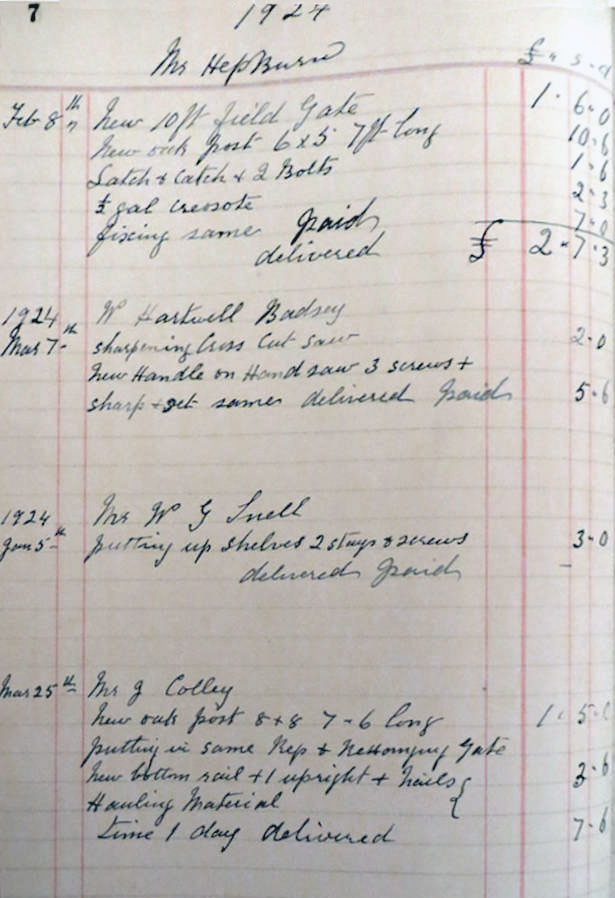 7
1924
Mr Hepburn
£ " s - d
Feb 8th New 10ft field Gate 1 . 6 . 0
" New oak post 6 x 5 7ft long 10 . 6
Latch & Catch & 2 Bolts 1 . 6
½ gal creosote 2 . 3
fixing same paid 7 . 0
delivered £ 2 " 7 . 3
1924 Wm Hartwell Badsey
Mar 7th sharpening Cross Cut Saw 2 - 0
New Handle on Hand saw 3 screws +
sharp + set same delivered paid 5 . 6
1924 Mr Wm G Snell
Jan 5th putting up shelves 2 stays & screws 3 - 0
delivered paid
Mar 25th Mr J Colley
New oak post 8 + 8 7 - 6 long 1 . 5 .
putting in same Rep & Gate
New bottom rail + 1 upright + Nails 3 . 6
Hauling Material
Time 1 day delivered 7 - 6